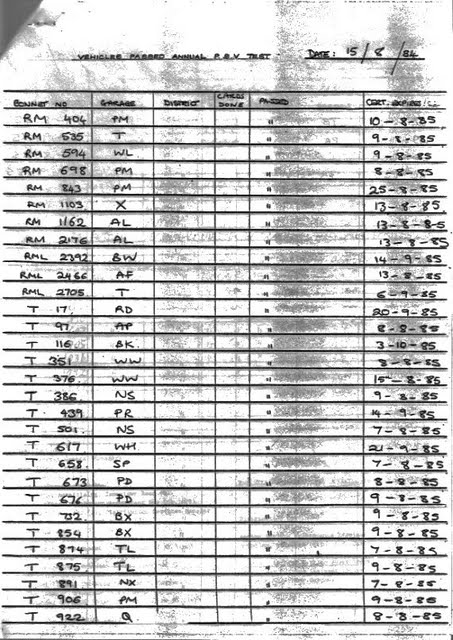 VEHICLES PASSED ANNUAL P.S.V TEST DATE: 15/8/84
BONNET NO GARAGE DISTRICT CARDS DONE PASSED CERT. EXPIRES
RM 404 PM " 10-8-85
RM 535 T " 9-8-85
RM 594 WL " 9-8-85
RM 698 PM " 8-8-85
RM 843 PM " 25-8-85
RM 1103 X " 13-8-85
RM 1162 AL " 13-8-85
RM 2176 AL " 13-8-85
RML 2392 BW " 14-9-85
RML 2466 AF " 13-8-85
RML 2705 T " 6-9-85
T 17 RD " 20-9-85
T 97 AP " 8-8-85
T 116 BK " 3-10-85
T 351 WW " 8-8-85
T 376 WW " 15-8-85
T 386 NS " 9-8-85
T 439 PR " 14-9-85
T 501 NS " 7-8-85
T 617 WH " 21-9-85
T 658 SP " 7-8-85
T 673 PD " 8-8-85
T 676 PD " 9-8-85
T BX " 9-8-85
T 854 BX " 9-8-85
T 874 TL " 7-8-85
T 875 TL " 9-8-85
T 891 NX " 7-8-85
T 906 PM " 9-8-85
T 922 Q " 8-8-85